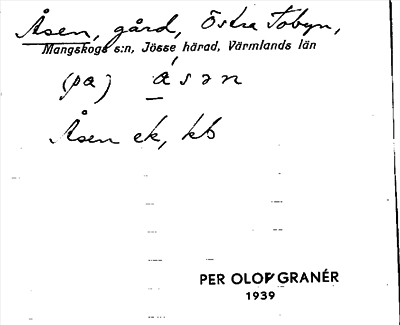 Åsen, gård, Östra Tobyn,
Mangskogs s:n, Jösse härad, Värmlands län
(pa) ásən
Åsen ek, kb
PER OLOF GRANÉR
1939